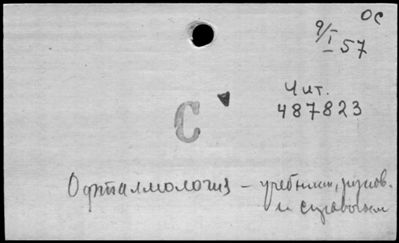 ОС
9/I 57
Чит.
487823
С
Офталмология – учебники, руков.
и справочни